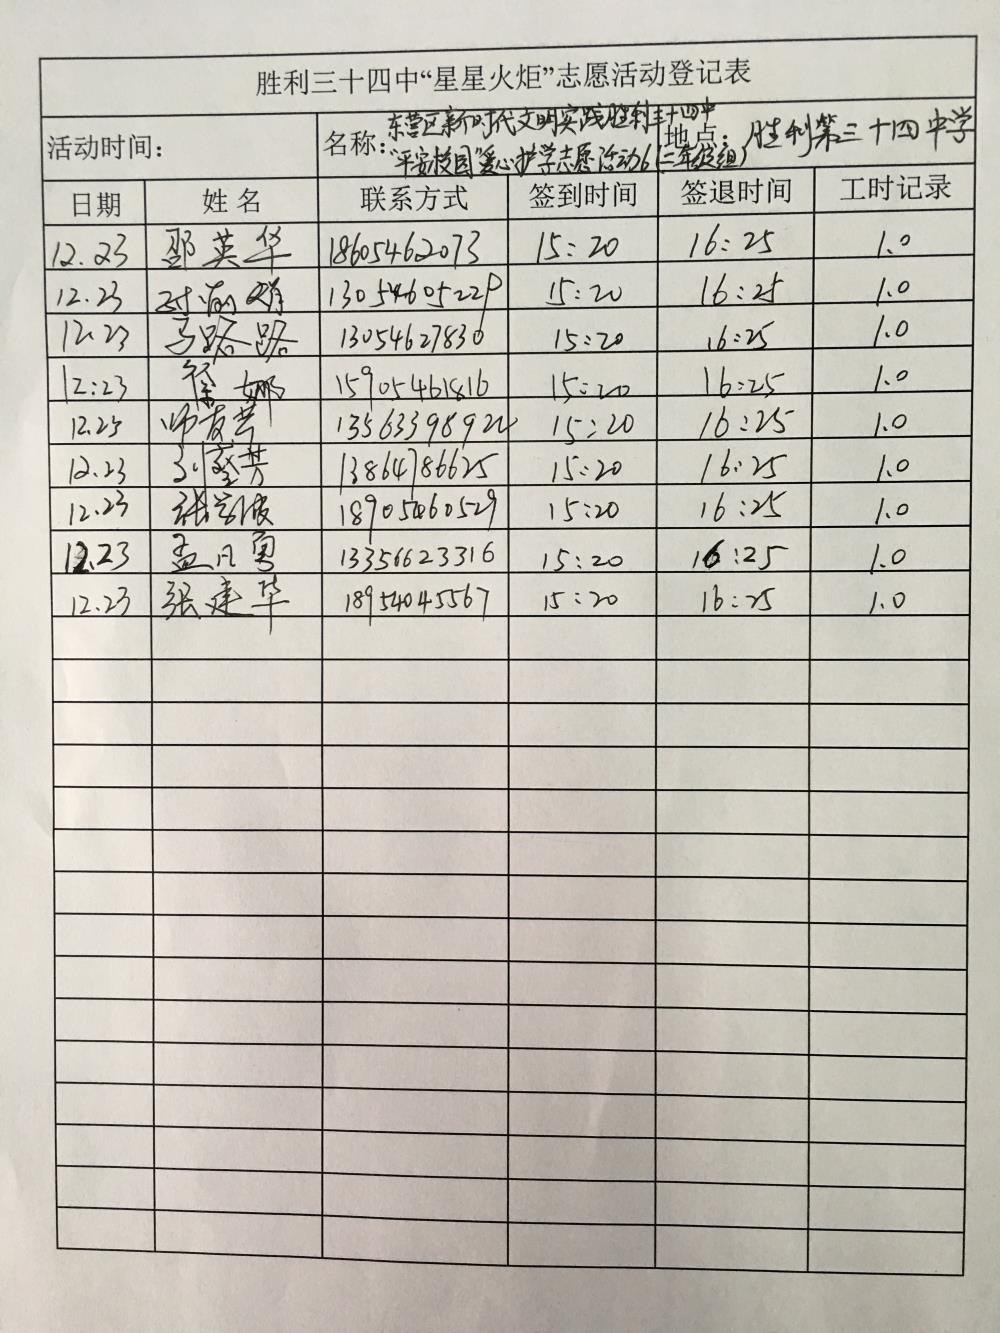 胜利三十四中“星星火炬”志愿活动登记表
活动时间：
名称：东营区新时代文明实践胜利三十四中
“平安校园”爱心护学志愿活动6(三年级组)
地点：胜利第三十四中学
日期 姓名 联系方式 签到时间 签退时间 工时记录
12.23 邵英华 18605462073 15:20 16:25 1.0
12.23 13054605229 15:20 16:25 1.0
12.23 马路路 13054627830 15:20 16:25 1.0
12:23 徐娜 15905461816 15:20 16:25 1.0
12.23 师友芳 13563398922 15:20 16:25 1.0
12.23 13864786625 15:20 16:25 1.0
12.23 18905460529 15:20 16:25 1.0
12.23 孟凡勇 13356623316 15:20 16:25 1.0
12.23 张建华 18954045567 15:20 16:25 1.0